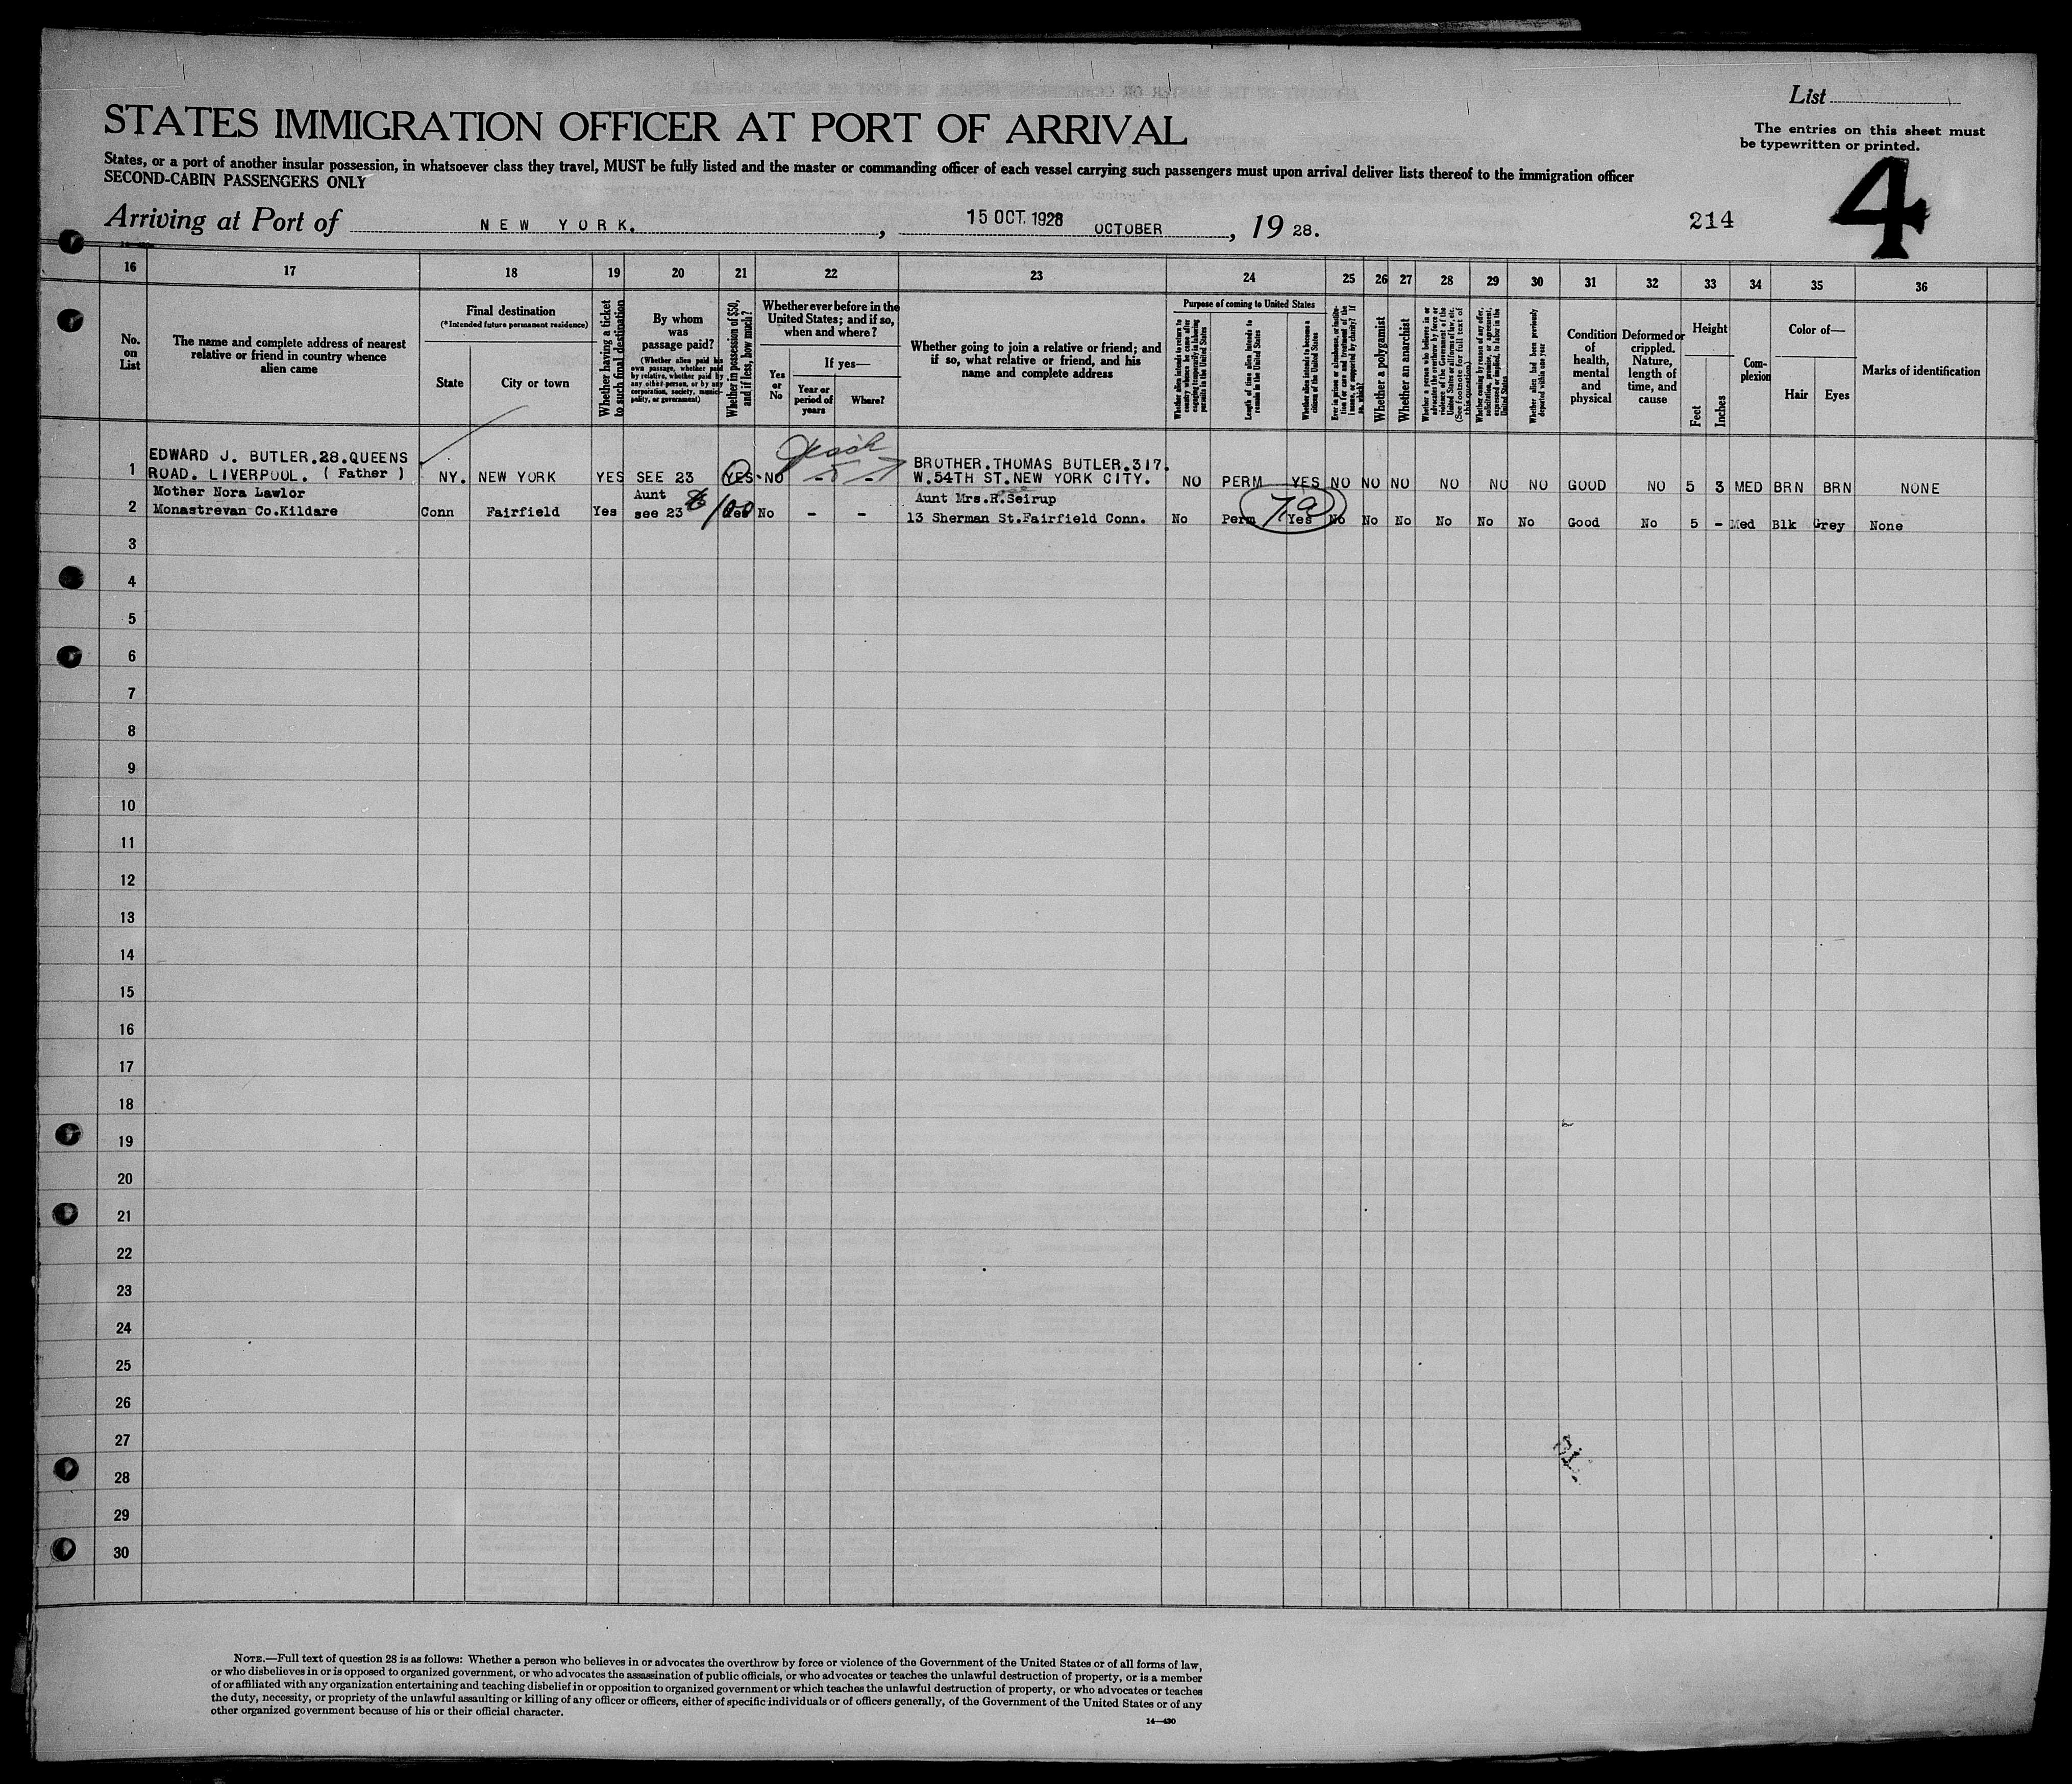 List
STATES IMMIGRATION OFFICER AT PORT OF ARRIVAL
The entries on this sheet must
be typewritten or printed.
States, or a port of another insular possession, in whatsoever class they travel, MUST be fully listed and the master or commanding officer of each vessel carrying such passengers must upon arrival deliver lists thereof to the immigration officer
SECOND-CABIN PASSENGERS ONLY
4
Arriving at Port of NEW YORK. , 15 OCT. 1928 OCTOBER , 19 28.
214
16 17 18 19 20 21 22 23 24 25 26 27 28 29 30 31 32 33 34 35 36
No.
on
List
The name and complete address of nearest
relative or friend in country whence
alien came
Final destination
(*Intended future permanent residence)
State
City or town
Whether having a ticket
to such final destination
By whom
was
passage paid?
(Whether alien paid his
own passage, whether paid
by relative, whether paid by
any other person, or by any
corporation, society, munici-
pality, or government)
Whether in possession of $50,
and if less, how much?
Whether ever before in the
United States; and if so,
when and where?
Yes
or
No
If yes—
Year or
period of
years
Where?
Whether going to join a relative or friend; and
if so, what relative or friend, and his
name and complete address
Purpose of coming to United States
Whether alien intends to return to
country whence he came after
engaging temporarily in laboring
pursuits in the United States
Length of time alien intends to
remain in the United States
Whether alien intends to become a
citizen of the United States
Ever in prison or almshouse, or institu-
tion for care and treatment of the
insane, or supported by charity? If
so, which?
Whether a polygamist
Whether an anarchist
Whether a person who believes in or
advocates the overthrow by force or
violence of the Government of the
United States or all forms of law, etc.
(See footnote for full text of
this question)
Whether coming by reason of any offer,
solicitation, promise, or agreement,
expressed or implied, to labor in the
United States
Whether alien had been previously
deported within one year
Condition
of
health,
mental
and
physical
Deformed or
crippled.
Nature,
length of
time, and
cause
Height
Feet
Inches
Com-
plexion
Color of—
Hair
Eyes
Marks of identification
EDWARD J. BUTLER.28.QUEENS
1 ROAD. LIVERPOOL. ( Father ) NY. NEW YORK YES SEE 23 YES NO - - BROTHER.THOMAS BUTLER.317.
W.54TH ST.NEW YORK CITY. NO PERM YES NO NO NO NO NO NO GOOD NO 5 3 MED BRN BRN NONE
Mother Nora Lawlor Aunt Aunt Mrs.R.Seirup
2 Monastrevan Co.Kildare Conn Fairfield Yes see 23 Yes No - - 13 Sherman St.Fairfield Conn. No Perm Yes No No No No No No Good No 5 - Med Blk Grey None
3
4
5
6
7
8
9
10
11
12
13
14
15
16
17
18
19
20
21
22
23
24
25
26
27
28
29
30
NOTE.—Full text of question 28 is as follows: Whether a person who believes in or advocates the overthrow by force or violence of the Government of the United States or of all forms of law,
or who disbelieves in or is opposed to organized government, or who advocates the assassination of public officials, or who advocates or teaches the unlawful destruction of property, or is a member
of or affiliated with any organization entertaining and teaching disbelief in or opposition to organized government or which teaches the unlawful destruction of property, or who advocates or teaches
the duty, necessity, or propriety of the unlawful assaulting or killing of any officer or officers, either of specific individuals or of officers generally, of the Government of the United States or of any
other organized government because of his or their official character.
14—430